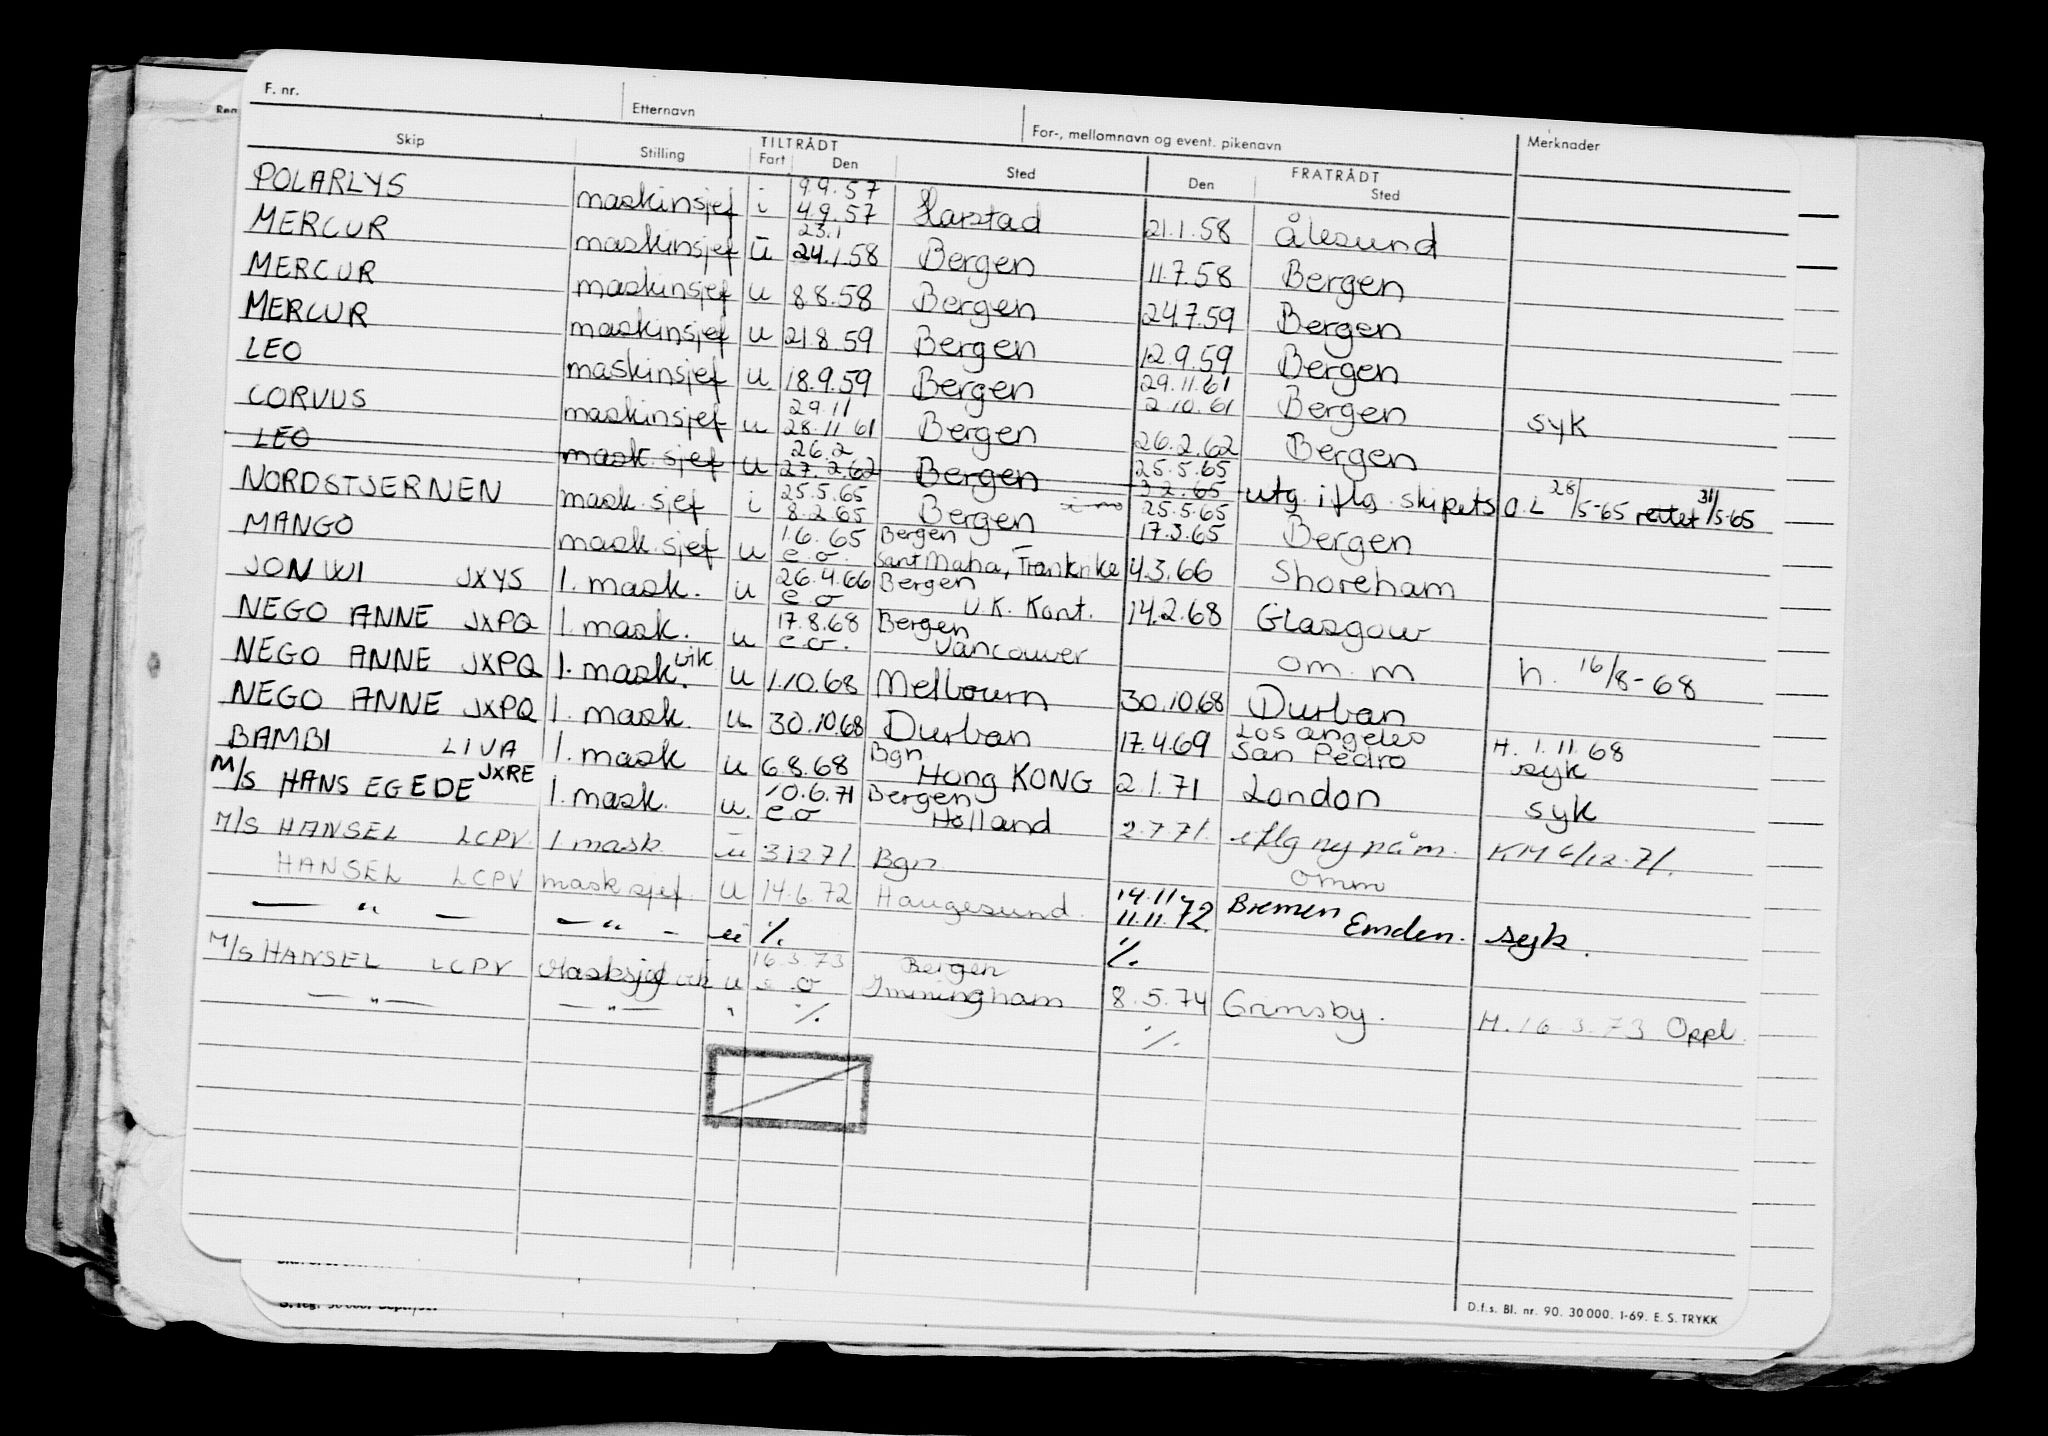 F. nr. Etternavn For-, mellomnavn og event. pikenavn Merknader
Skip Stilling TILTRÅDT Fart Den Sted FRATRÅDT Den Sted
POLARLYS maskinsjef i 9.9.57 4.9.57 Harstad 21.1.58 Ålesund
MERCUR maskinsjef u 23.1 24.1.58 Bergen 11.7.58 Bergen
MERCUR maskinsjef u 8.8.58 Bergen 24.7.59 Bergen
MERCUR maskinsjef u 21.8.59 Bergen 12.9.59 Bergen
LEO maskinsjef u 18.9.59 Bergen 29.11.61 2.10.61 Bergen syk
CORVUS maskinsjef u 29.11 28.11 61 Bergen 26.2.62 Bergen
LEO mask. sjef u 26.2 27.2.62 Bergen 25.5.65 3.2.65 utg. iflg. skipets O.L 28/5-65 rettet 31/5-65
NORDSTJERNEN mask. sjef i 25.5.65 8.2.65 Bergen 25.5.65 17.3.65 Bergen
MANGO mask. sjef u 1.6.65 e.o. Bergen Sant Maha, Frankrike 4.3.66 Shoreham
JON WI JXYS 1. mask. u 26.4.66 e.o Bergen U.K. Kont. 14.2.68 Glasgow
NEGO ANNE JXPQ 1. mask. u 17.8.68 e.o. Bergen Vancouver om. m h. 16/8-68
NEGO ANNE JXPQ 1. mask. vik u 1.10.68 Melbourn 30.10.68 Durban
NEGO ANNE JXPQ 1. mask. u 30.10.68 Durban 17.4.69 Los angeles San Pedro H. 1.11.68 syk
BAMBI LIVA 1. mask u 6.8.68 Bgn Hong KONG 2.1.71 London syk
M/S HANS EGEDE JXRE 1. mask. u. 10.6.71 e.o Bergen Holland 2.7.71. iflg ny påm. KM 6/12.71.
M/S HANSEL LCPV 1 mask. u 3.12.71 Bgn omm
HANSEL LCPV mask sjef. u 14.6.72 Haugesund. 14.11 11.11.72 Bremen Emden. syk.
— " — — " - u ./. ./.
M/S HANSEL LCPV Masksjef vik u 16.3.73 e.o Bergen Immingham 8.5.74 Grimsby. H. 16.3.73 Oppl.
— " — — " — " ./. ./.
D.f.s. Bl. nr. 90. 30 000. 1-69. E. S. TRYKK